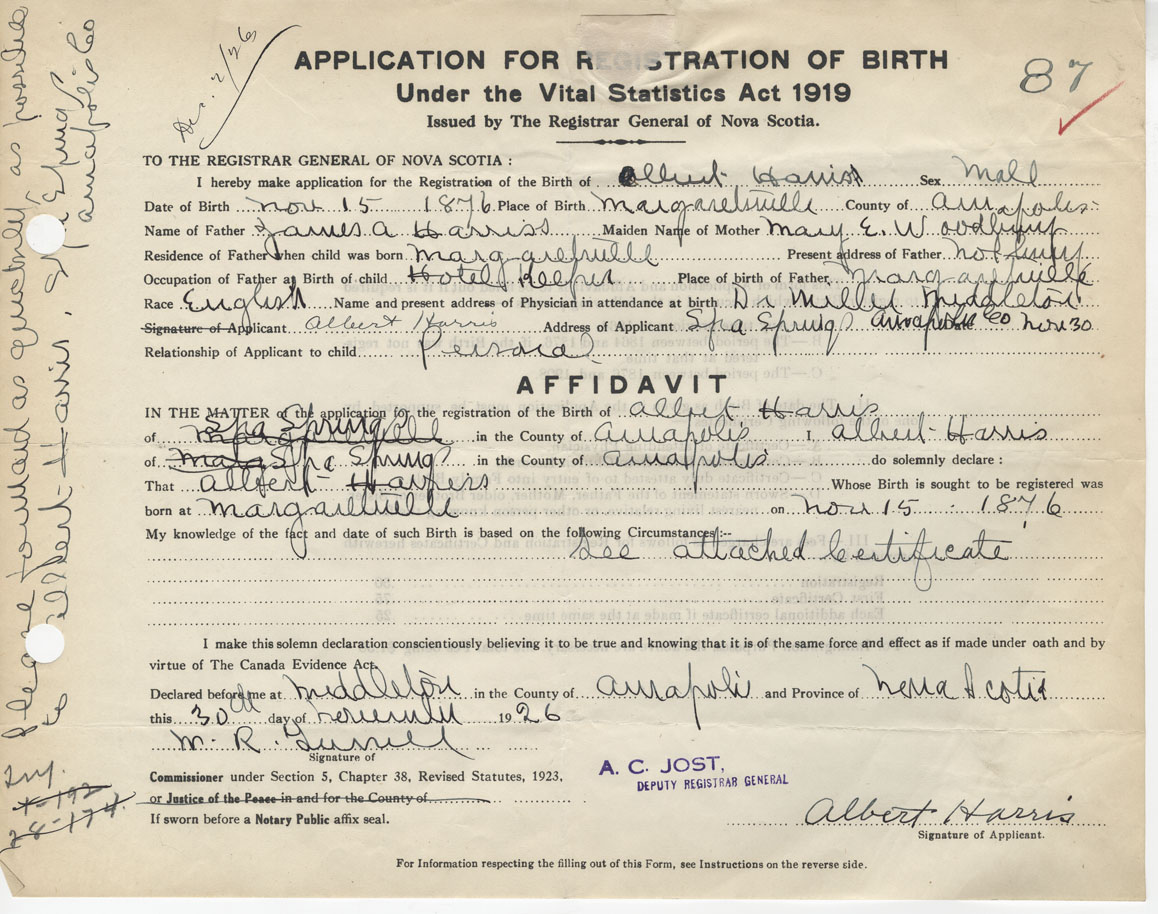 APPLICATION FOR REGISTRATION OF BIRTH
Under the Vital Statistics Act 1919
Issued by The Registrar General of Nova Scotia.
Dec. 2/26
87
TO THE REGISTRAR GENERAL OF NOVA SCOTIA :
I hereby make application for the Registration of the Birth of Albert Harris Sex Male
Date of Birth Nov 15 1876 Place of Birth Margaretsville County of Annapolis
Name of Father James A Harris Maiden Name of Mother Mary E. Woodbury
Residence of Father when child was born Margaretville Present address of Father not living
Occupation of Father at Birth of child Hotel Keeper Place of birth of Father Margaretville
Race English Name and present address of Physician in attendance at birth Dr Miller Middleton
Signature of Applicant Albert Harris Address of Applicant Spa Springs Annapolis Co Nov 30
Relationship of Applicant to child
AFFIDAVIT
IN THE MATTER of the application for the registration of the Birth of Albert Harris
of Spa Springs in the County of Annapolis I, Albert Harris
of Spa Springs in the County of Annapolis do solemnly declare :
That Albert Harris Whose Birth is sought to be registered was
born at Margaretville on Nov 15 1876
My knowledge of the fact and date of such Birth is based on the following Circumstances :--
See attached Certificate
I make this solemn declaration conscientiously believing it to be true and knowing that it is of the same force and effect as if made under oath and by
virtue of The Canada Evidence Act.
Declared before me at Middleton in the County of Annapolis and Province of Nova Scotia
this 30th day of November 1926
M. R.
Signature of
Commissioner under Section 5, Chapter 38, Revised Statutes, 1923,
or Justice of the Peace in and for the County of
If sworn before a Notary Public affix seal.
A. C. JOST,
DEPUTY REGISTRAR GENERAL
Albert Harris
Signature of Applicant.
For Information respecting the filling out of this Form, see Instructions on the reverse side.
Please forward as quickly as possible
to Albert Harris, Spa Springs
Annapolis Co